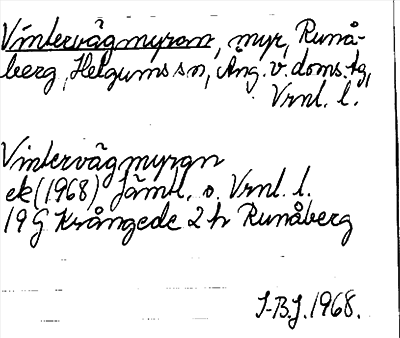 Vintervägmyran, myr, Runå-
berg, Helgums sn, Ång. v. doms. tg,
Vrnl. l.
Vintervägmyran
ek (1968) Jämtl. o. Vrnl. l.
19 G Krångede 2 h Runåberg
S-B.J. 1968.